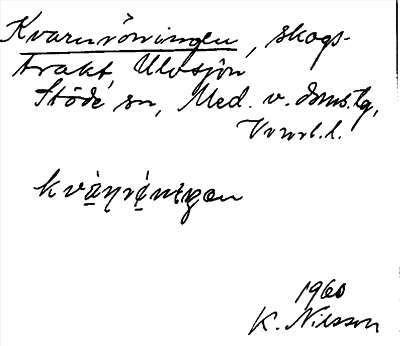 Kvarnröningen, skogs-
trakt, Ulvsjön
Stöde sn, Med. v. doms.tg,
Vnorl. l.
kvàṇrø̀niŋen
1960
K. Nilsson